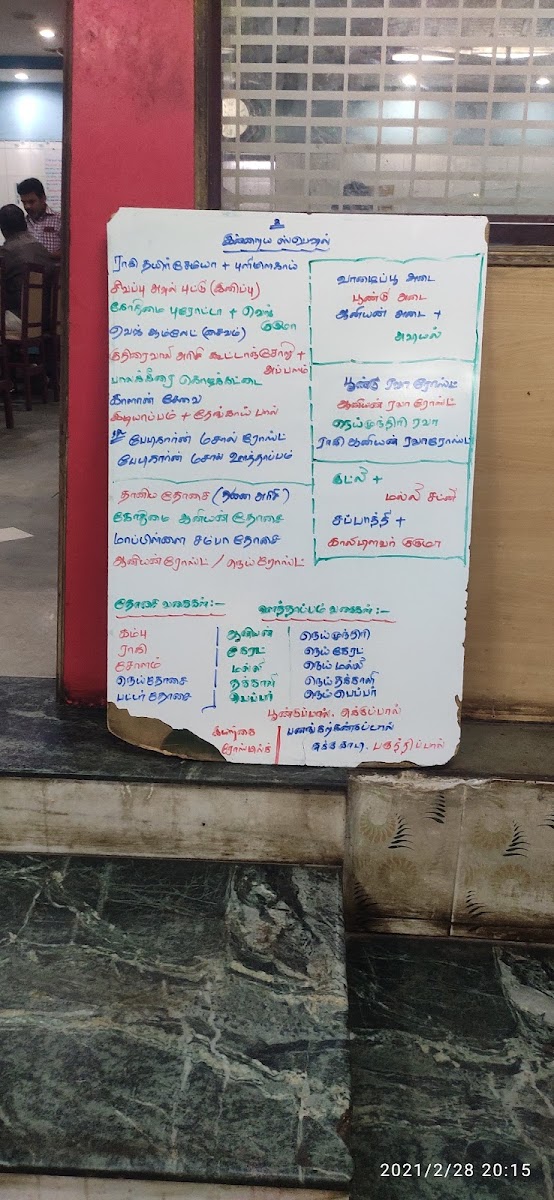 உ
இன்றைய ஸ்பெஷல்
ராகி தயிர் சேமியா + புளிமிளகாய்
சிவப்பு அவல் புட்டு (இனிப்பு)
கோதுமை புரோட்டா + வெஜ்
குருமா
வெஜ் ஆம்லேட் (சைவம்)
குதிரைவாலி அரிசி கூட்டாஞ்சோறு +
அப்பளம்
பாலக்கீரை கொழுக்கட்டை
காளான் சேவை
இடியாப்பம் + தேங்காய் பால்
பேபிகார்ன் மசால் ரோஸ்ட்
பேபிகார்ன் மசால் ஊத்தாப்பம்
வாழைப்பூ அடை
பூண்டு அடை
ஆனியன் அடை +
அவியல்
பூண்டு ரவா ரோஸ்ட்
ஆனியன் ரவா ரோஸ்ட்
நெய் முந்திரி ரவா
ராகி ஆனியன் ரவா ரோஸ்ட்
இட்லி +
மல்லி சட்னி
சப்பாத்தி +
காலிபிளவர் குருமா
தானிய தோசை (தினை அரிசி)
கோதுமை ஆனியன் தோசை
மாப்பிள்ளை சம்பா தோசை
ஆனியன் ரோஸ்ட் / நெய் ரோஸ்ட்
தோசை வகைகள் :-
ஊத்தாப்பம் வகைகள் :-
கம்பு
ராகி
சோளம்
நெய் தோசை
பட்டர் தோசை
ஆனியன்
கேரட்
மல்லி
தக்காளி
பெப்பர்
நெய் முந்திரி
நெய் கேரட்
நெய் மல்லி
நெய் தக்காளி
நெய் பெப்பர்
பூண்டுப்பால், சுக்குப்பால்
இயற்கை
ரோஸ்மில்க்
பனங்கற்கண்டுப்பால்
பருத்திப்பால்
2021/2/28 20:15